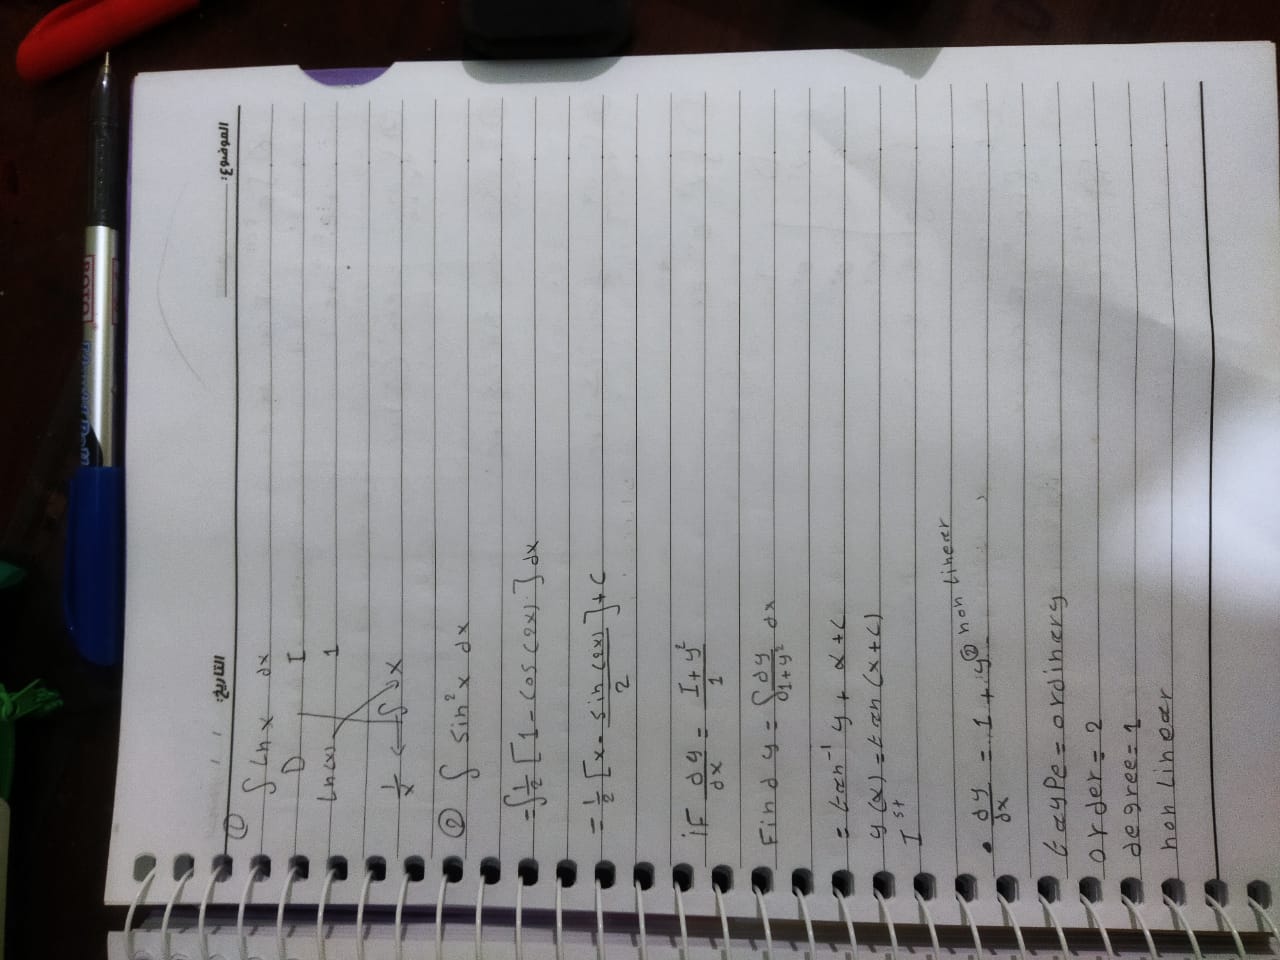 ROTO
التاريخ: / /
الموضوع:
①
∫ Ln x dx
D I
Ln(x) 1
1/x ← ∫ x
② ∫ sin²x dx
= ∫ 1/2 [1 - cos(2x)] dx
= 1/2 [x - sin(2x)/2] + C
iF dy/dx = I + y²/1
Find y = ∫ dy/1+y² dx
= tan⁻¹ y + x + c
y(x) = tan (x+c)
I st
• dy/dx = 1 + y② non Linear
taype = ordinary
order = 2
degree = 1
non Linear